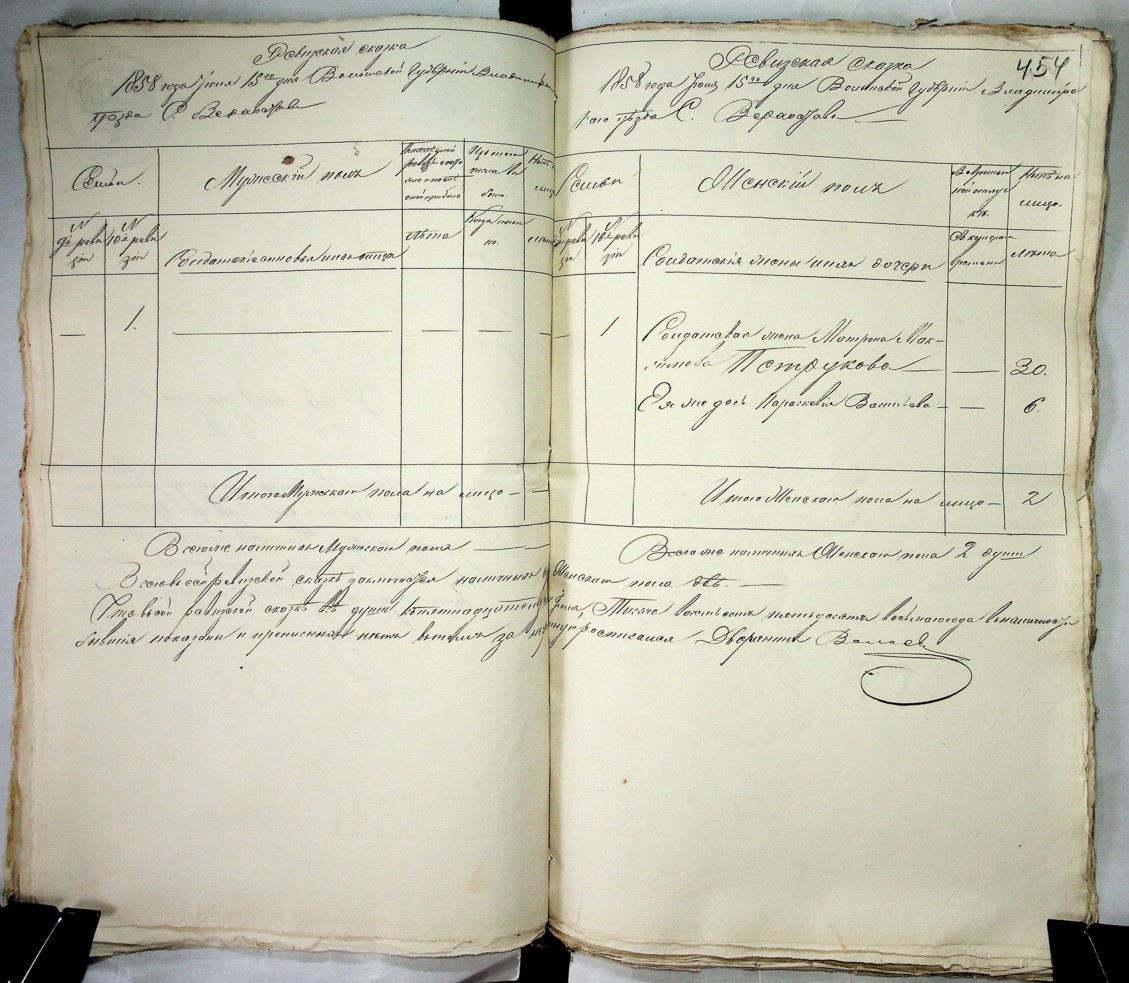 Ревизская сказка
1858 года Июня 15го дня Волынской Губернии Владимирска
уѣзда С.
Семьи.
Мужескій полъ
N 9й ревизіи
N 10й ревизіи
Солдатскіе сыновья или отца
Лѣта
— 1. — — — —
Итого Мужескаго пола на лицо — —
454
Ревизская сказка
1858 года Июня 15го дня Волынской Губерніи Владимірс
каго уѣзда С.
Семьи
Женскій полъ
Въ временной отлучкѣ.
Нынѣ на лицо.
N 9й ревизіи
N 10й ревизіи
Солдатскія жены и ихъ дочери
Съ котораго времени
Лѣта
— 1 Солдатская жена Матрона Мак-
симова Петрукова — — 30.
Ея же дочь Параскевія Васильева — — 6.
Итого Женскаго пола на лицо — 2
Всего же наличныхъ Мужескаго пола — —
Всего же наличныхъ Женскаго пола 2 души
Всего въ сей ревизской сказкѣ заключается наличныхъ Женскаго пола двѣ. —
Что въ сей ревизской сказкѣ всѣ души въ пятнадцатое Июня, Тысяча восемьсотъ пятьдесятъ восьмаго года въ наличности
бывшія показаны и прописныхъ нѣтъ въ томъ за росписался Дворянинъ